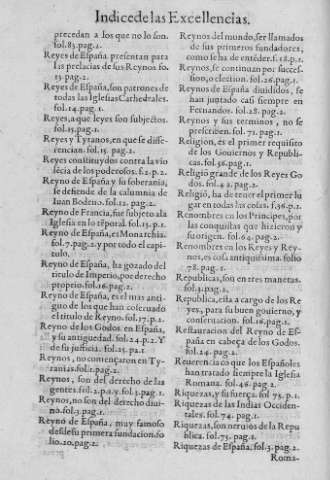 Indice de las Excellencias.
precedan a los que no lo son.
fol.83.pag.2.
Reyes de España presentan para
las prelacias de sus Reynos fo.
13 pag.2.
Reyes de España, son patrones de
todas las Iglesias Cathedrales.
fol.14.pag.1.
Reyes, a que leyes son subjectos.
fol.15.pag.1.
Reyes y Tyranos, en que se diffe-
rencian. fol. 15. pag.2.
Reyes constituydos contra la vio
lécia de los poderosos. f.2.p.2.
Reyno de España y su soberania,
se defiende de la calumnia de
Iuan Bodeno. fol.12. pag.2.
Reyno de Francia, fue subjeto ala
Iglesia en lo téporal. fol.15.p.1.
Reyno de España, es Monarchia.
fol.7.pag.2. y por todo el capi-
tulo.
Reyno de España, ha gozado del
titulo de Imperio, por derecho
proprio. fol.16.pag.2.
Reyno de España, es el mas anti-
guo de los que han colocado
el titulo de Reyno. fol.17.p.1.
Reyno de los Godos en España,
y su antiguedad. fol.24.p.2. Y
de su justicia. fol.25. pa.1
Reynos, no començaron en Ty-
ranias. fol.2.pag.2.
Reynos, son del derecho de las
gentes. fol.2.p.2. y fol.3.pag.1.
Reynos, no son del derecho diui
no. fol.3 pag.1.
Reyno de España, muy famoso
desde su primera fundacion. fo
lio.20.pag.2.
Reynos del mundo, ser llamados
de sus primeros fundadores,
como se ha de entéder. f.18.p.1.
Reynos, se continuan por succes-
sion, o election. fol.26.pag.1.
Reynos de España diuididos, se
han juntado casi siempre en
Fernandos. fol.28. pag.2.
Reynos y sus terminos, no se
prescriben. fol. 71. pag.1.
Religion, es el primer requisito
de los Gouiernos y Republi-
cas. fol.56.pag.1.
Religió grande de los Reyes Go
dos. fol 42 pag.2.
Religió, ha de tener el primer lu
gar en todas las cosas. f.56.p.1.
Renombres en los Principes, por
las conquistas que hizieron y
su origen. fol 64. pag.2.
Renombres en los Reyes y Rey-
nos, es cosa antiquissima. folio
78. pag.1.
Republicas, son en tres maneras.
fol.3.pag.1.
Republica, esta a cargo de los Re
yes, para su buen gouierno, y
conseruacion. fol.16.pag.1.
Restauracion del Reyno de Es-
paña en cabeça de los Godos.
fol.24. pag.2.
Reuerencia co que los Españoles
han tratado siempre la Iglesia
Romana. fol.46. pag 2.
Riquezas, y su fuerça. fol 75. p.1.
Riquezas de las Indias Occiden-
tales. fol.74. pag.1.
Riquezas, son neruios de la Repu
blica. fol.75. pag.2.
Riquezas de España, fol.3. pag.2.
Roma-